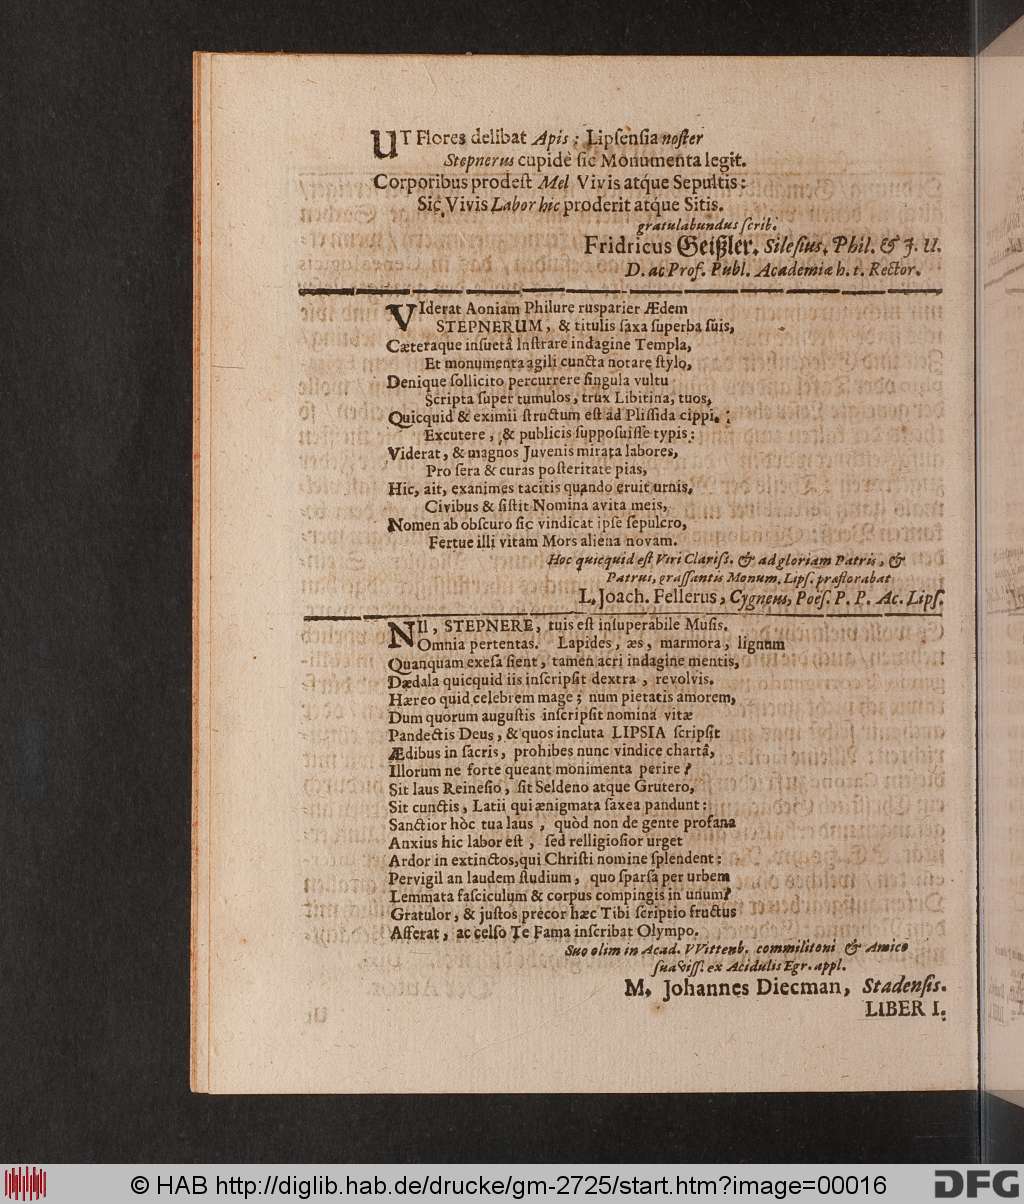 UT Flores delibat Apis; Lipſenſia noſter
Stepnerus cupidè ſic Monumenta legit.
Corporibus prodeſt Mel Vivis atq́ue Sepultis:
Sic Vivis Labor hic proderit atq́ue Sitis.
gratulabundus ſcrib.
Fridricus Geißler, Sileſius, Phil. & J. U.
D. ac Prof. Publ. Academiæ h. t. Rector.
VIderat Aoniam Philure rusparier Ædem
STEPNERUM, & titulis ſaxa ſuperba ſuis,
Cæteraque inſuetâ luſtrare indagine Templa,
Et monumenta agili cuncta notare ſtylo,
Denique ſollicito percurrere ſingula vultu
Scripta ſuper tumulos, trux Libitina, tuos,
Quicquid & eximii ſtructum eſt ad Pliſſida cippi,
Excutere, & publicis ſuppoſuiſſe typis:
Viderat, & magnos Juvenis mirata labores,
Pro ſera & curas poſteritate pias,
Hic, ait, exanimes tacitis quando eruit urnis,
Civibus & ſiſtit Nomina avita meis,
Nomen ab obſcuro ſic vindicat ipſe ſepulcro,
Fertue illi vitam Mors aliena novam.
Hoc quicquid eſt Viri Clariſſ. & ad gloriam Patris, &
Patrui, graſſantis Monum. Lipſ. præflorabat
L. Joach. Fellerus, Cygneus, Poeſ. P. P. Ac. Lipſ.
NIl, STEPNERE, tuis eſt inſuperabile Muſis.
Omnia pertentas. Lapides, æs, marmora, lignum
Quanquam exeſa ſient, tamen acri indagine mentis,
Dædala quicquid iis inſcripſit dextra, revolvis.
Hæreo quid celebrem mage; num pietatis amorem,
Dum quorum auguſtis inſcripſit nomina vitæ
Pandectis Deus, & quos incluta LIPSIA ſcripſit
Ædibus in ſacris, prohibes nunc vindice chartâ,
Illorum ne forte queant monimenta perire?
Sit laus Reineſio, ſit Seldeno atque Grutero,
Sit cunctis, Latii qui ænigmata ſaxea pandunt:
Sanctior hòc tua laus, quòd non de gente profana
Anxius hic labor eſt, ſed relligioſior urget
Ardor in extinctos, qui Chriſti nomine ſplendent:
Pervigil an laudem ſtudium, quo ſparſa per urbem
Lemmata faſciculum & corpus compingis in unum?
Gratulor, & juſtos precor hæc Tibi ſcriptio fructus
Afferat, ac celſo Te Fama inſcribat Olympo.
Suo olim in Acad. VVittenb. commilitoni & Amico
ſuaviſſ. ex Acidulis Egr. appl.
M. Johannes Diecman, Stadenſis.
LIBER I.
© HAB http://diglib.hab.de/drucke/gm-2725/start.htm?image=00016
DFG